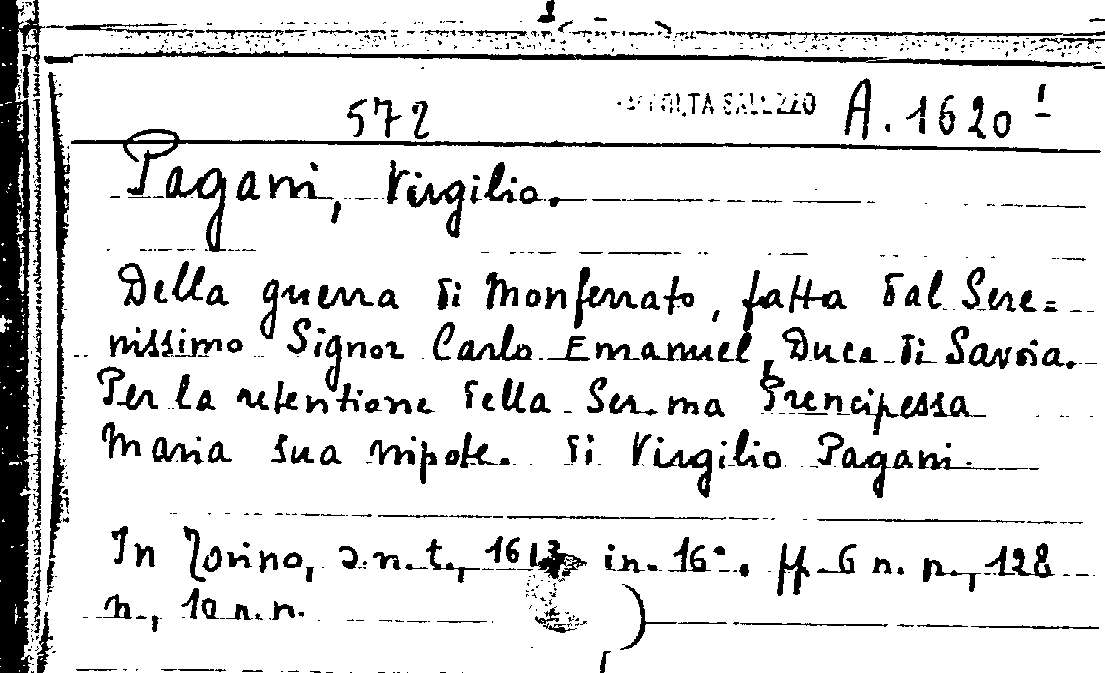 572 RACCOLTA SALUZZO A. 1620 1
Pagani, Virgilio.
Della guerra di Monferrato, fatta dal Sere=
nissimo Signor Carlo Emanuel, Duca di Savoia.
Per la retentione della Ser.ma Prencipessa
Maria sua nipote. Di Virgilio Pagani.
In Torino, s.n.t., 1613 in. 16°. ff. 6 n. n., 128
n., 10 n.n.